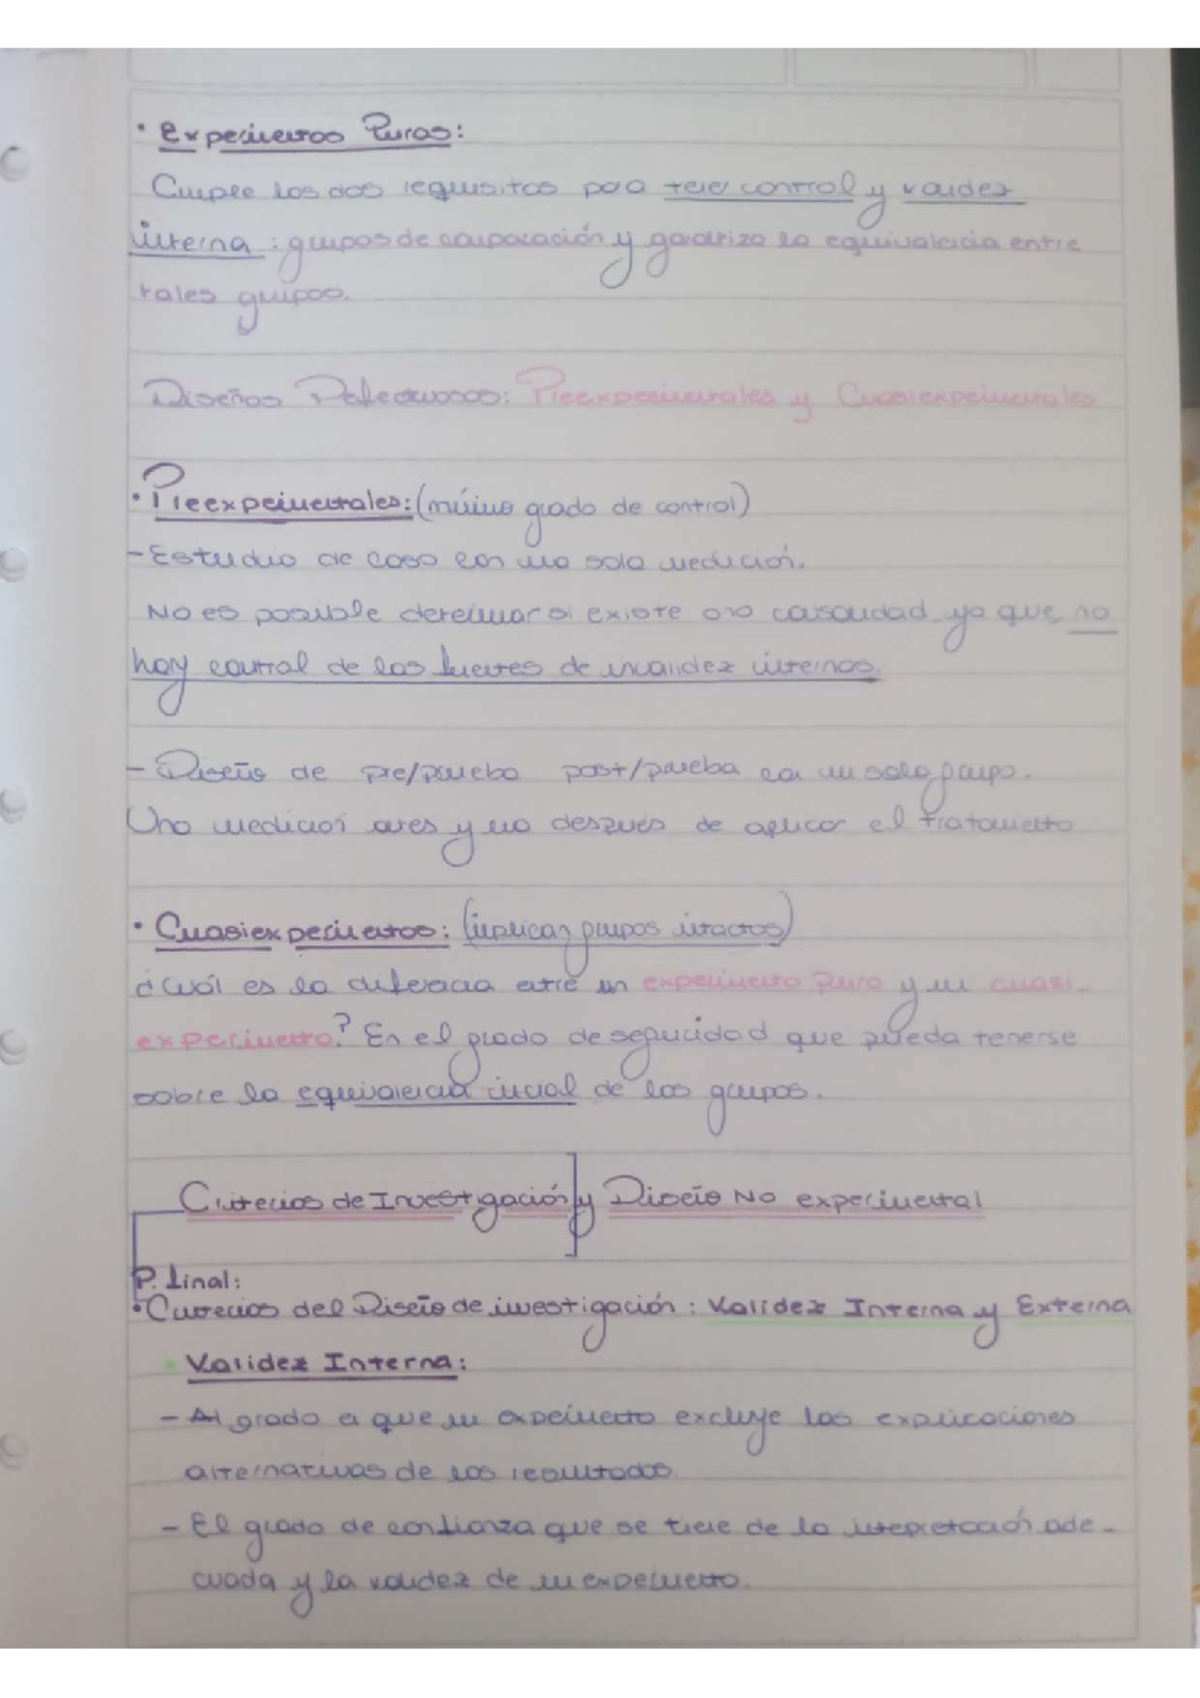 • Experimentos Puros:
Cumple los dos requisitos para tener control y validez
interna: grupos de comparación y garantiza la equivalencia entre
tales grupos.
Diseños Defectuosos: Preexperimentales y Cuasiexperimentales
• Preexperimentales: (mínimo grado de control)
- Estudio de caso con una sola medición.
No es posible determinar si existe o no casualidad ya que no
hay control de las fuentes de invalidez internas.
- Diseño de pre/prueba post/prueba con un solo grupo.
Una medición antes y una después de aplicar el tratamiento
• Cuasiexperimentos: (implican grupos intactos)
¿Cuál es la diferencia entre un experimento puro y un cuasi-
experimento? En el grado de seguridad que pueda tenerse
sobre la equivalencia inicial de los grupos.
Criterios de Investigación y Diseño No experimental
P. final:
• Criterios del Diseño de investigación: Validez Interna y Externa
• Validez Interna:
- Al grado en que un experimento excluye las explicaciones
alternativas de los resultados
- El grado de confianza que se tiene de la interpretación ade-
cuada y la validez de un experimento.